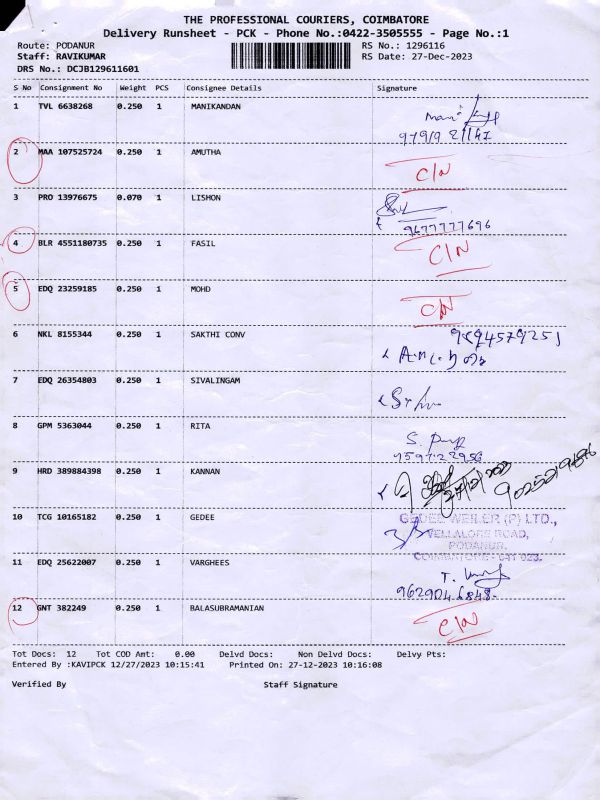 THE PROFESSIONAL COURIERS, COIMBATORE
Delivery Runsheet - PCK - Phone No.:0422-3505555 - Page No.:1
Route: PODANUR RS No.: 1296116
Staff: RAVIKUMAR RS Date: 27-Dec-2023
DRS No.: DCJB129611601
S No Consignment No Weight PCS Consignee Details Signature
1 TVL 6638268 0.250 1 MANIKANDAN
2 MAA 107525724 0.250 1 AMUTHA C/N
3 PRO 13976675 0.070 1 LISHON
9677777696
4 BLR 4551180735 0.250 1 FASIL C/N
5 EDQ 23259185 0.250 1 MOHD C/N
6 NKL 8155344 0.250 1 SAKTHI CONV
7 EDQ 26354803 0.250 1 SIVALINGAM
8 GPM 5363044 0.250 1 RITA
9 HRD 389884398 0.250 1 KANNAN
10 TCG 10165182 0.250 1 GEDEE GEDEE WEILER (P) LTD.,
VELLALORE ROAD,
PODANUR,
COIMBATORE - 641 023.
11 EDQ 25622007 0.250 1 VARGHEES
12 GNT 382249 0.250 1 BALASUBRAMANIAN C/N
Tot Docs: 12 Tot COD Amt: 0.00 Delvd Docs: Non Delvd Docs: Delvy Pts:
Entered By :KAVIPCK 12/27/2023 10:15:41 Printed On: 27-12-2023 10:16:08
Verified By Staff Signature